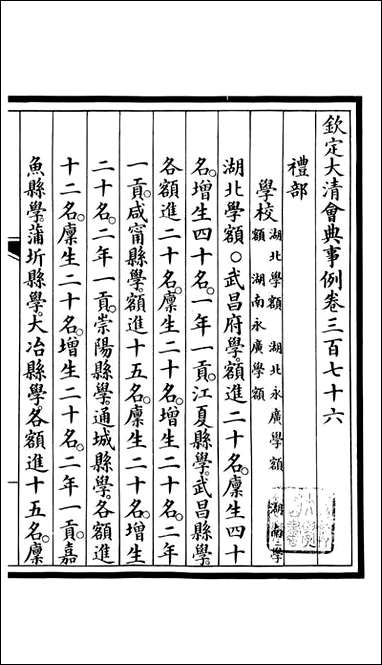 欽定大清會典事例卷三百七十六
禮部
學校湖北學額 湖北永廣學額
額 湖南永廣學額 湖南學
湖北學額○武昌府學。額進二十名。廩生四十
名。增生四十名。一年一貢。江夏縣學。武昌縣學。
各額進二十名。廩生二十名。增生二十名。二年
一貢。咸甯縣學。額進十五名。廩生二十名。增生
二十名。二年一貢。崇陽縣學。通城縣學。各額進
十二名。廩生二十名。增生二十名。二年一貢。嘉
魚縣學。蒲圻縣學。大冶縣學。各額進十五名。廩